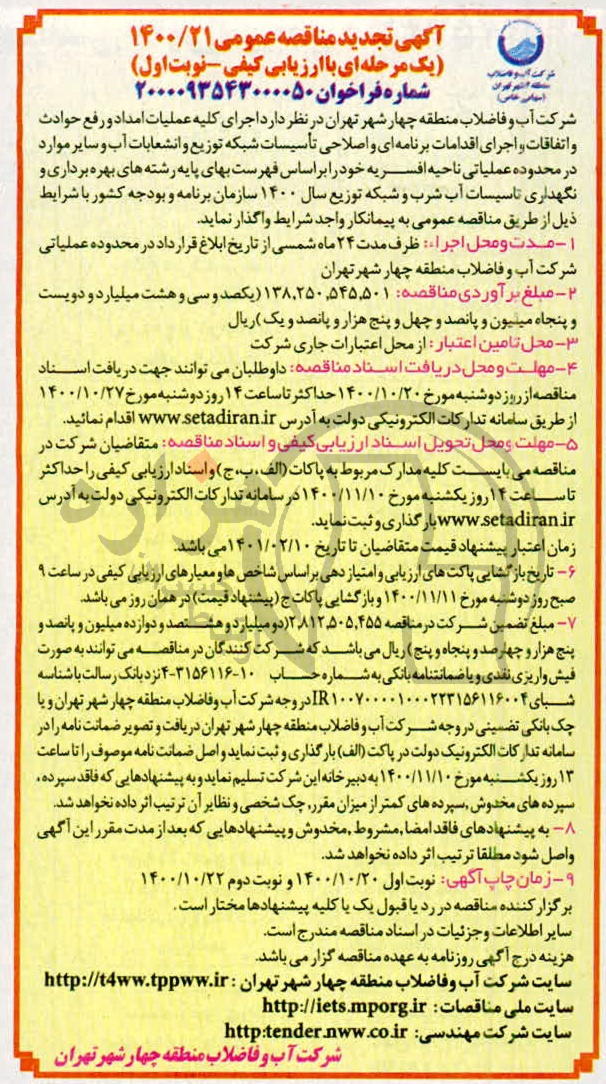 آگهی تجدید مناقصه عمومی ۱۴۰۰/۲۱
(یک مرحله‌ای با ارزیابی کیفی – نوبت اول)
شماره فراخوان ۲۰۰۰۰۹۳۵۴۳۰۰۰۰۵۰
شرکت آب و فاضلاب
منطقه ۴ شهر تهران
(سهامی خاص)
شرکت آب و فاضلاب منطقه چهار شهر تهران در نظر دارد اجرای کلیه عملیات امداد و رفع حوادث
و اتفاقات و اجرای اقدامات برنامه‌ای و اصلاحی تأسیسات شبکه توزیع و انشعابات آب و سایر موارد
در محدوده عملیاتی ناحیه افسریه خود را براساس فهرست بهای پایه رشته‌های بهره برداری و
نگهداری تاسیسات آب شرب و شبکه توزیع سال ۱۴۰۰ سازمان برنامه و بودجه کشور با شرایط
ذیل از طریق مناقصه عمومی به پیمانکار واجد شرایط واگذار نماید.
۱- مدت و محل اجراء: ظرف مدت ۲۴ ماه شمسی از تاریخ ابلاغ قرارداد در محدوده عملیاتی
شرکت آب و فاضلاب منطقه چهار شهر تهران
۲- مبلغ برآوردی مناقصه: ۱۳۸,۲۵۰,۵۴۵,۵۰۱ (یکصد و سی و هشت میلیارد و دویست
و پنجاه میلیون و پانصد و چهل و پنج هزار و پانصد و یک) ریال
۳- محل تامین اعتبار: از محل اعتبارات جاری شرکت
۴- مهلت و محل دریافت اسناد مناقصه: داوطلبان می توانند جهت دریافت اسناد
مناقصه از روز دوشنبه مورخ ۱۴۰۰/۱۰/۲۰ حداکثر تا ساعت ۱۴ روز دوشنبه مورخ ۱۴۰۰/۱۰/۲۷
از طریق سامانه تدارکات الکترونیکی دولت به آدرس www.setadiran.ir اقدام نمائید.
۵- مهلت و محل تحویل اسناد ارزیابی کیفی و اسناد مناقصه: متقاضیان شرکت در
مناقصه می بایست کلیه مدارک مربوط به پاکات (الف، ب، ج) و اسناد ارزیابی کیفی را حداکثر
تا ساعت ۱۴ روز یکشنبه مورخ ۱۴۰۰/۱۱/۱۰ در سامانه تدارکات الکترونیکی دولت به آدرس
www.setadiran.ir بارگذاری و ثبت نماید.
زمان اعتبار پیشنهاد قیمت متقاضیان تا تاریخ ۱۴۰۱/۰۲/۱۰ می باشد.
۶- تاریخ بازگشایی پاکت های ارزیابی و امتیاز دهی براساس شاخص ها و معیارهای ارزیابی کیفی در ساعت ۹
صبح روز دوشنبه مورخ ۱۴۰۰/۱۱/۱۱ و بازگشایی پاکات ج (پیشنهاد قیمت) در همان روز می باشد.
۷- مبلغ تضمین شرکت در مناقصه ۲,۸۱۲,۵۰۵,۴۵۵ (دو میلیارد و هشتصد و دوازده میلیون و پانصد و
پنج هزار و چهارصد و پنجاه و پنج) ریال می باشد که شرکت کنندگان در مناقصه می توانند به صورت
فیش واریزی نقدی و یا ضمانتنامه بانکی به شماره حساب ۱۰-۳۱۵۶۱۱۶-۴ نزد بانک رسالت با شناسه
شبای IR۱۰۰۷۰۰۰۰۱۰۰۰۲۲۳۱۵۶۱۱۶۰۰۴ در وجه شرکت آب و فاضلاب منطقه چهار شهر تهران و یا
چک بانکی تضمینی در وجه شرکت آب و فاضلاب منطقه چهار شهر تهران دریافت و تصویر ضمانت نامه را در
سامانه تدارکات الکترونیک دولت در پاکت (الف) بارگذاری و ثبت نماید و اصل ضمانت نامه موصوف را تا ساعت
۱۳ روز یکشنبه مورخ ۱۴۰۰/۱۱/۱۰ به دبیرخانه این شرکت تسلیم نماید و به پیشنهادهایی که فاقد سپرده،
سپرده های مخدوش، سپرده های کمتر از میزان مقرر، چک شخصی و نظایر آن ترتیب اثر داده نخواهد شد.
۸- به پیشنهادهای فاقد امضا، مشروط، مخدوش و پیشنهادهایی که بعد از مدت مقرر این آگهی
واصل شود مطلقا ترتیب اثر داده نخواهد شد.
۹- زمان چاپ آگهی: نوبت اول ۱۴۰۰/۱۰/۲۰ و نوبت دوم ۱۴۰۰/۱۰/۲۲
برگزار کننده مناقصه در رد یا قبول یک یا کلیه پیشنهادها مختار است.
سایر اطلاعات و جزئیات در اسناد مناقصه مندرج است.
هزینه درج آگهی روزنامه به عهده مناقصه گزار می باشد.
سایت شرکت آب و فاضلاب منطقه چهار شهر تهران: http://t4ww.tppww.ir
سایت ملی مناقصات: http://iets.mporg.ir
سایت شرکت مهندسی: http:tender.nww.co.ir
شرکت آب و فاضلاب منطقه چهار شهر تهران
هزاره